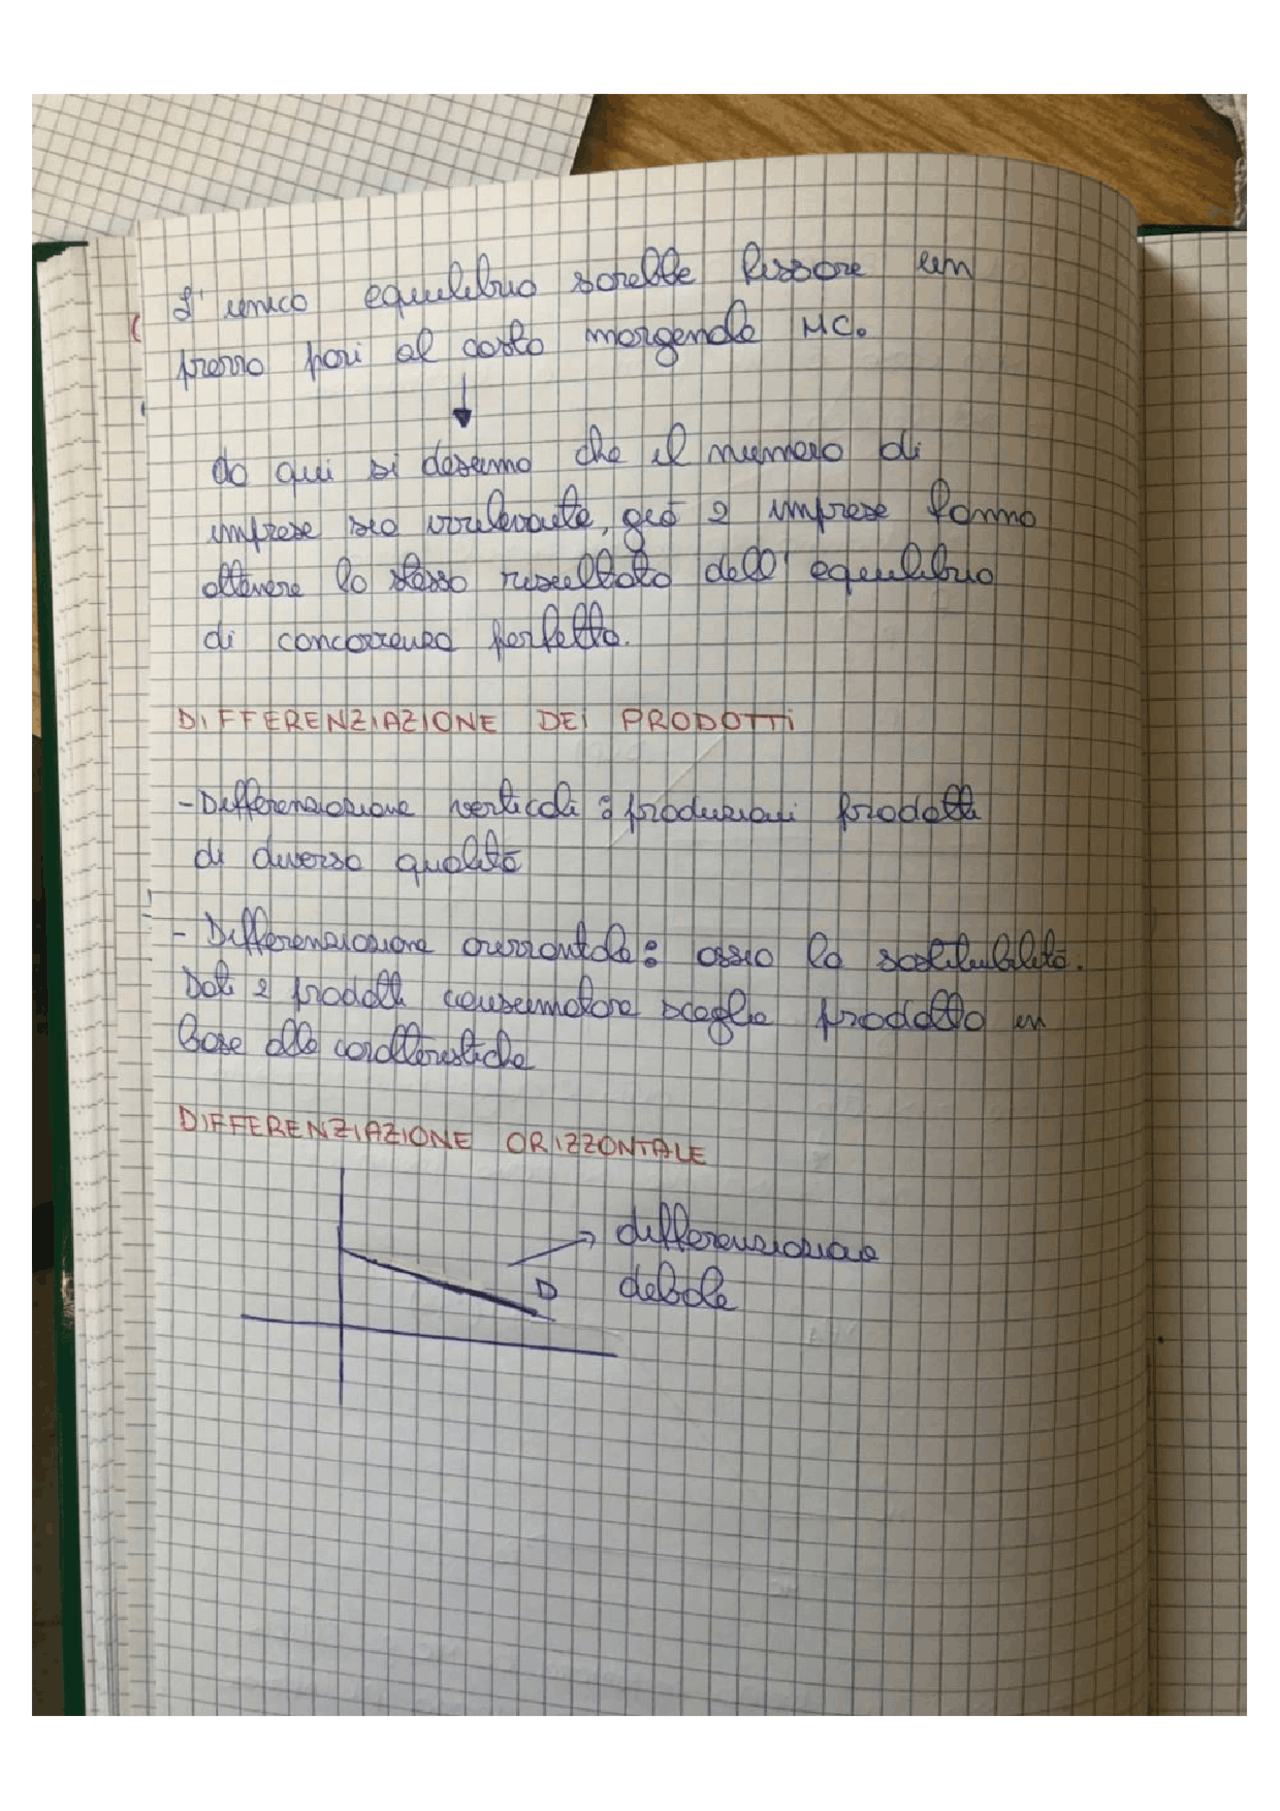 L'unico equilibrio sarebbe fissare un
prezzo pari al costo marginale MC.
da qui si desume che il numero di
imprese sia irrilevante, già 2 imprese fanno
ottenere lo stesso risultato dell'equilibrio
di concorrenza perfetta.
DIFFERENZIAZIONE DEI PRODOTTI
- Differenziazione verticali: produzioni prodotti
di diversa qualità
- Differenziazione orizzontale: ossia la sostitubilità.
Dati 2 prodotti consumatore sceglie prodotto in
base alle caratteristiche
DIFFERENZIAZIONE ORIZZONTALE
differenziazione
D debole